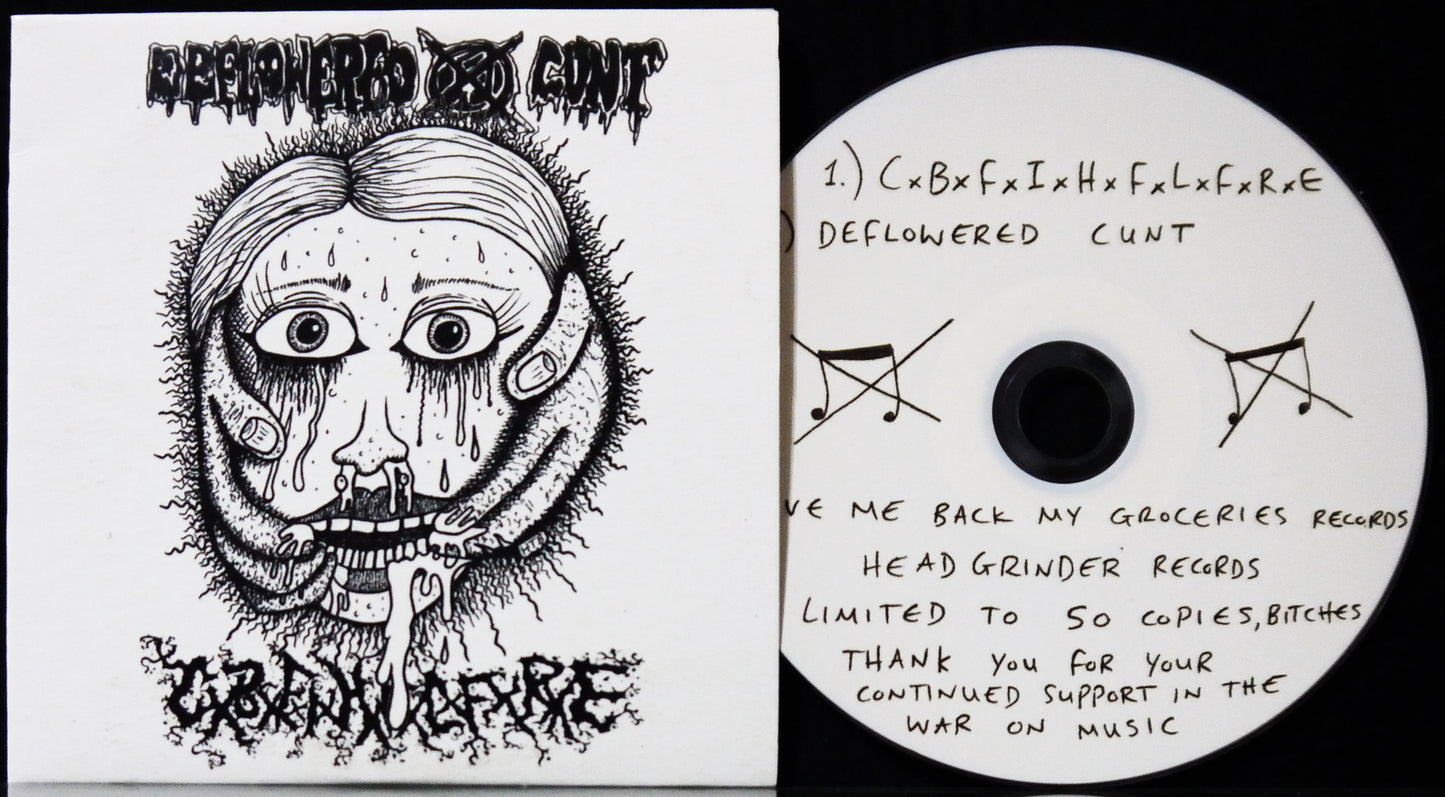 DEFLOWERED CUNT
CxBxFxIxHxFxLxFxRxE
1.) CxBxFxIxHxFxLxFxRxE
) DEFLOWERED CUNT
VE ME BACK MY GROCERIES RECORDS
HEAD GRINDER RECORDS
LIMITED TO 50 COPIES, BITCHES
THANK YOU FOR YOUR
CONTINUED SUPPORT IN THE
WAR ON MUSIC